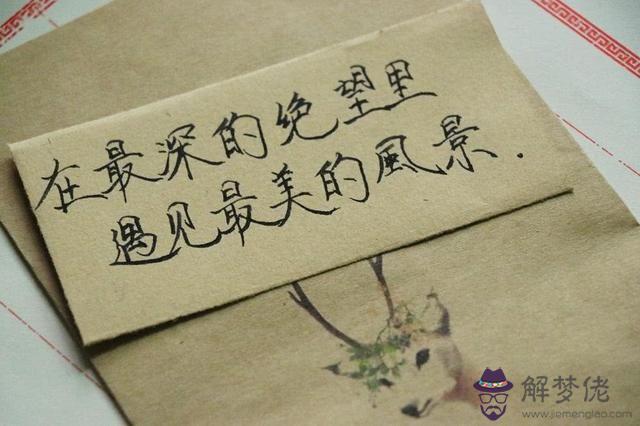 在最深的绝望里
遇见最美的風景.
解梦佬
www.jiemenglao.com